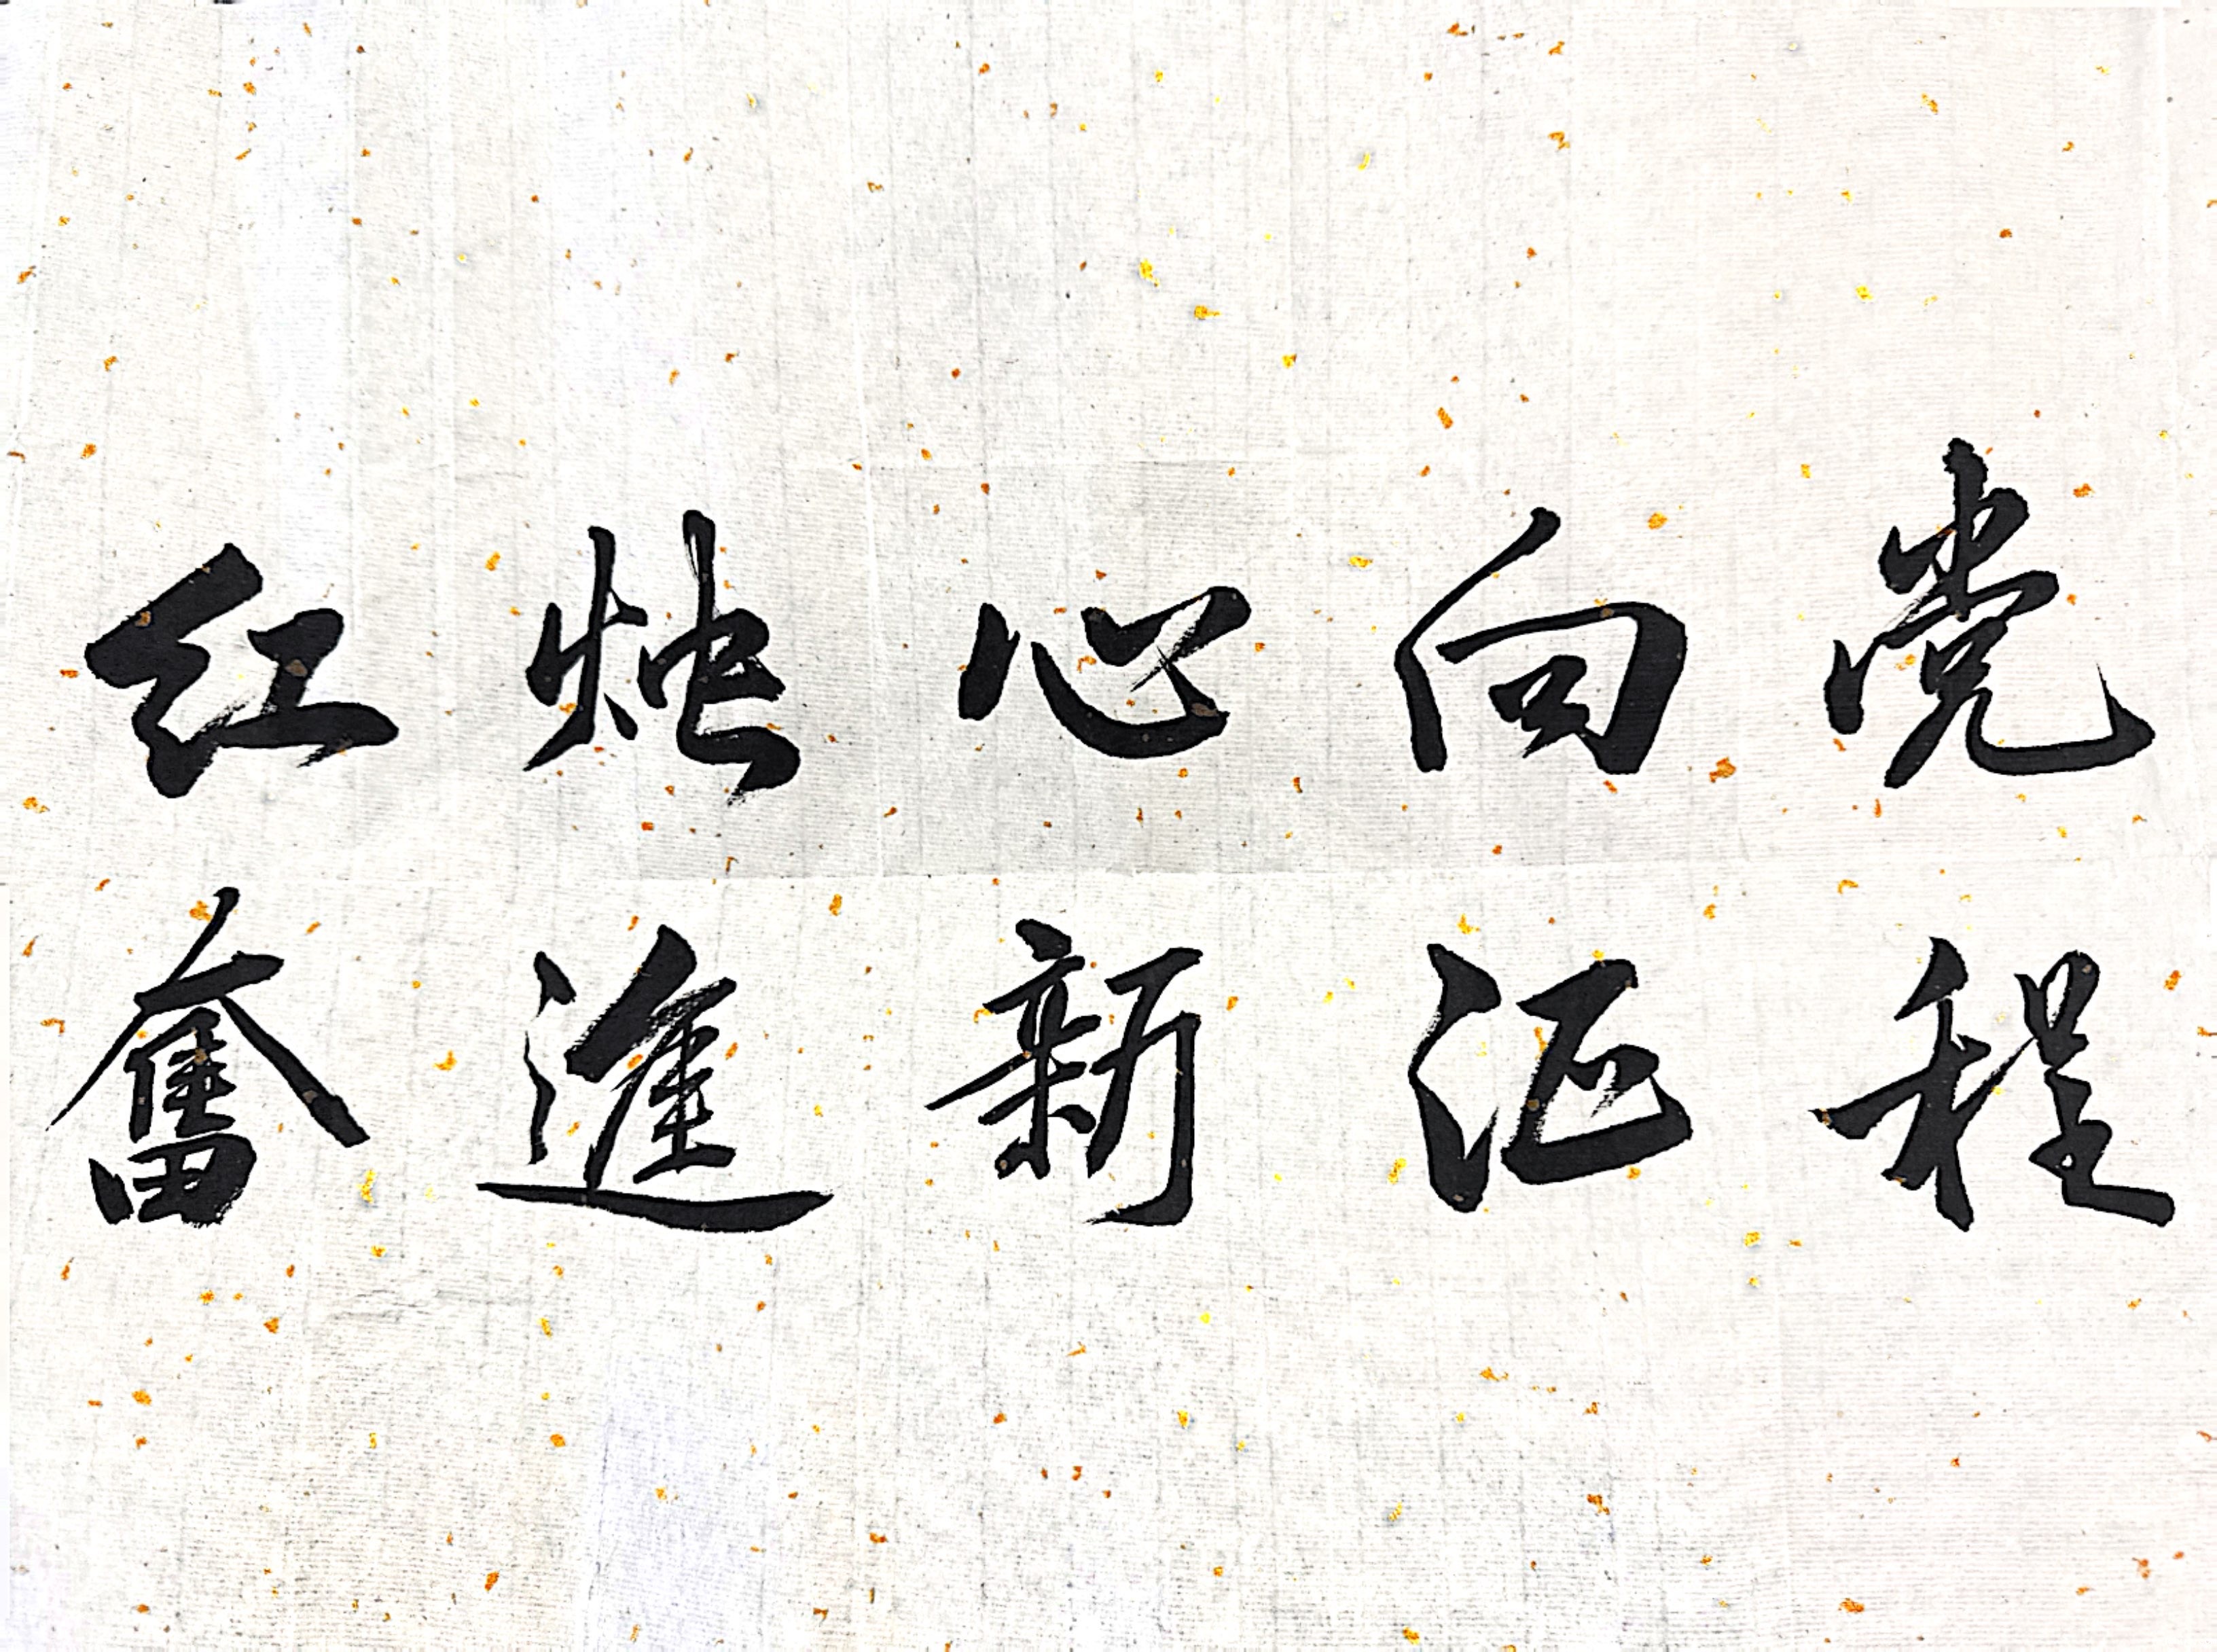 红烛心向党
奮進新征程